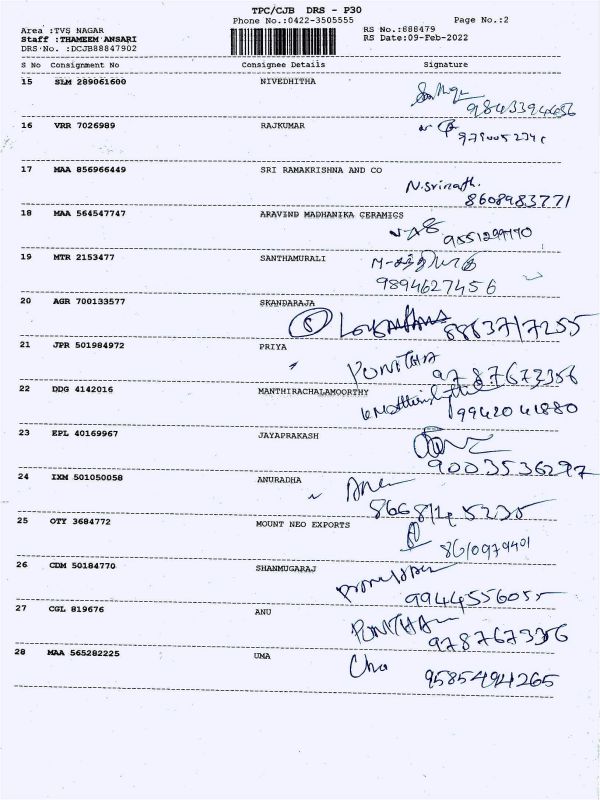 TPC/CJB DRS - P30
Phone No.:0422-3505555
Page No.:2
Area :TVS NAGAR
Staff :THAMEEM ANSARI
DRS No. :DCJB88847902
RS No.:888479
RS Date:09-Feb-2022
S No Consignment No Consignee Details Signature
15 SLM 289061600 NIVEDHITHA
9843394456
16 VRR 7026989 RAJKUMAR
17 MAA 856966449 SRI RAMAKRISHNA AND CO
N.Srinath.
8608983771
18 MAA 564547747 ARAVIND MADHANIKA CERAMICS
19 MTR 2153477 SANTHAMURALI
9894627456
20 AGR 700133577 SKANDARAJA
8863717255
21 JPR 501984972 PRIYA
PONITHA
9787673356
22 DDG 4142016 MANTHIRACHALAMOORTHY
9942041880
23 EPL 40169967 JAYAPRAKASH
9003536297
24 IXM 501050058 ANURADHA
25 OTY 3684772 MOUNT NEO EXPORTS
8610979401
26 CDM 50184770 SHANMUGARAJ
9944556055
27 CGL 819676 ANU
PONITHA
9787673356
28 MAA 565282225 UMA
9585494265